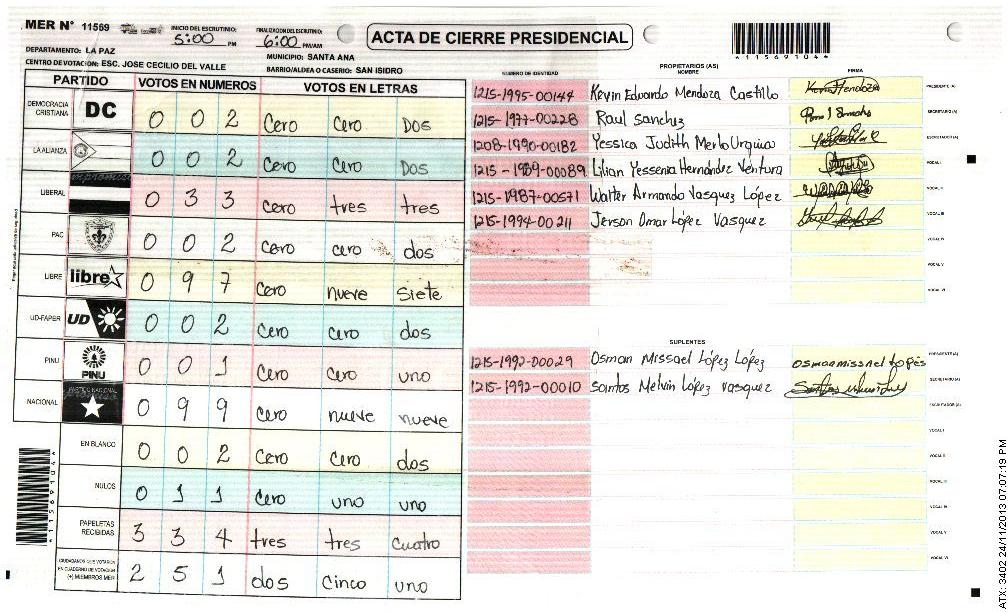 MER N° 11569
INICIO DEL ESCRUTINIO: 5:00 PM
FINALIZACION DEL ESCRUTINIO: 6:00 PM/AM
ACTA DE CIERRE PRESIDENCIAL
115691044
DEPARTAMENTO: LA PAZ
MUNICIPIO: SANTA ANA
CENTRO DE VOTACION: ESC. JOSE CECILIO DEL VALLE
BARRIO/ALDEA O CASERIO: SAN ISIDRO
PARTIDO VOTOS EN NUMEROS VOTOS EN LETRAS
DEMOCRACIA CRISTIANA DC 0 0 2 cero cero Dos
LA ALIANZA 0 0 2 cero cero Dos
LIBERAL 0 3 3 cero tres tres
PAC 0 0 2 cero cero dos
LIBRE libre 0 9 7 cero nueve siete
UD-FAPER UD 0 0 2 cero cero dos
PINU PINU 0 0 1 cero cero uno
NACIONAL PARTIDO NACIONAL 0 9 9 cero nueve nueve
EN BLANCO 0 0 2 cero cero dos
NULOS 0 1 1 cero uno uno
PAPELETAS RECIBIDAS 3 3 4 tres tres cuatro
CIUDADANOS QUE VOTARON EN CUADERNO DE VOTACION (+) MIEMBROS MER 2 5 1 dos cinco uno
PROPIETARIOS (AS)
NUMERO DE IDENTIDAD NOMBRE FIRMA
1215-1995-00144 Kevin Eduardo Mendoza Castillo Kevin Mendoza PRESIDENTE (A)
1215-1977-00228 Raul Sanchez SECRETARIO (A)
1208-1990-00182 Yessica Judith Merlo Urquia ESCRUTADOR (A)
1215-1989-00089 Lilian Yessenia Hernández Ventura VOCAL I
1215-1987-00571 Walter Armando Vasquez López VOCAL II
1215-1994-00211 Jerson Omar López Vasquez VOCAL III
VOCAL IV
VOCAL V
VOCAL VI
SUPLENTES
1215-1992-00029 Osman Missael López López osman missael lopes PRESIDENTE (A)
1215-1992-00010 Santos Melvin López Vasquez SECRETARIO (A)
ESCRUTADOR (A)
VOCAL I
VOCAL II
VOCAL III
VOCAL IV
VOCAL V
VOCAL VI
115691044
ATX: 3402 24/11/2013 07:07:19 PM